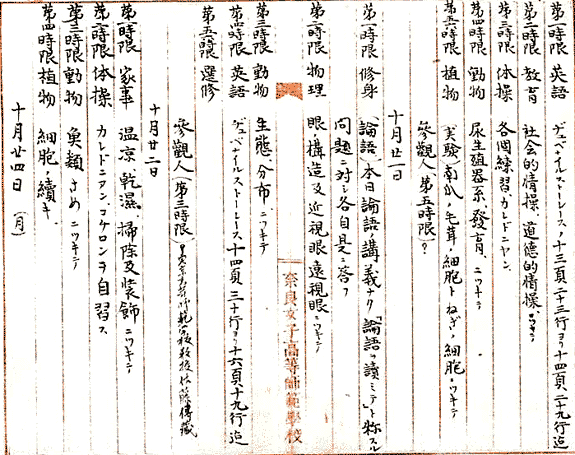 第一時限 英語 ヂュベナイルストーレース十三頁二十三行ヨリ十四頁二十九行迄
第二時限 教育 社会的情操、道德的情操、ニツキテ
第三時限 体操 各個練習、カレドニヤン
第四時限 動物 尿生殖器系、發育、ニツキテ
第五時限 植物 実験(南瓜ノ毛茸ノ細胞トねぎノ細胞ニツキテ
參觀人(第五時限)?
十月廿一日
第一時限 修身 論語(本日論語ノ講義ナク「論語ヲ讀ミテ」ト称スル
問題ニ対シ各自是ニ答フ
第二時限 物理 眼ノ構造及近視眼遠視眼ニツキテ
奈良女子高等師範學校
第三時限 動物 生態、分布ニツキテ
第四時限 英語 ヂュベナイルストーレース十四頁三十行ヨリ十六頁十九行迄
第五時限 選修
參觀人(第三時限)
十月廿二日
第一時限 家事 温凉、乾濕、掃除及装飾ニツキテ
第二時限 体操 カレドニアン、コケロンヲ自習ス
第三時限 動物 魚類さめニツキテ
第四時限 植物 細胞ノ續キ
十月廿四日(月)